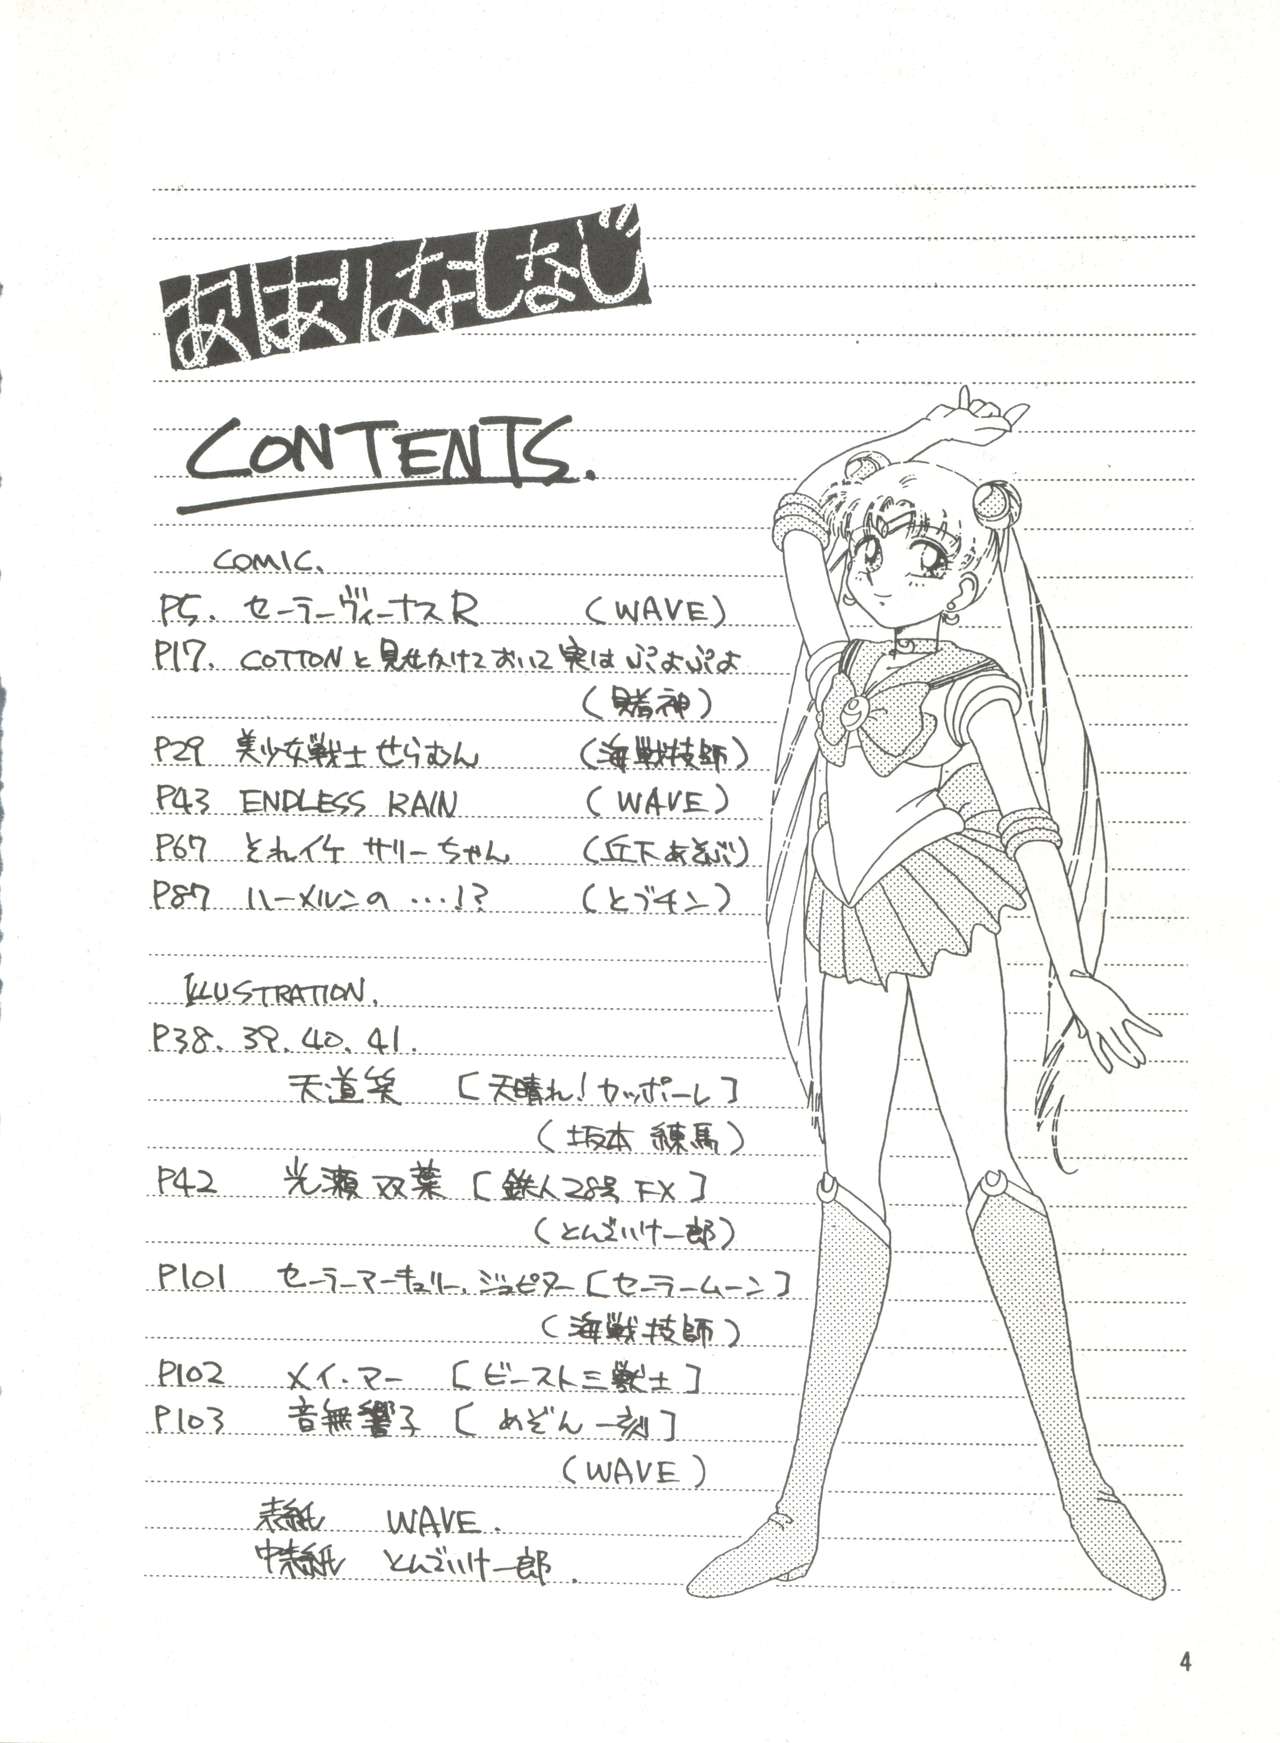 おはありのなしなじ
CONTENTS.
COMIC.
P5. セーラーヴィーナスR (WAVE)
P17. COTTONと見せかけておいて実はぷよぷよ
(賭神)
P29 美少女戦士せらむん (海戦技師)
P43 ENDLESS RAIN (WAVE)
P67 それイケ サリーちゃん (丘下あそぶ)
P87 ハーメルンの…!? (とブチン)
ILLUSTRATION.
P38. 39. 40. 41.
天道笑 [天晴れ!カッポーレ]
(坂本 練馬)
P42 光瀬 双葉 [鉄人28号 FX]
(とんでいけ一郎)
P101 セーラーマーキュリー.ジュピター[セーラームーン]
(海戦技師)
P102 メイ・マー [ビースト三獣士]
P103 音無響子 [めぞん一刻]
(WAVE)
表紙 WAVE.
中表紙 とんでいけ一郎.
4